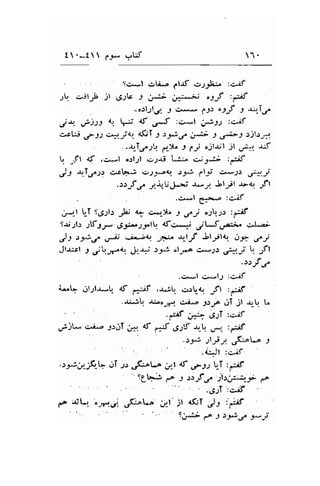 ۱۶۰ کتاب سوم ۴۱۱-۴۱۰
گفت: منظورت کدام صفات است؟
گفتم: گروه نخستین خشن و عاری از ظرافت بار
می‌آیند و گروه دوم سست و بی‌اراده.
گفت: روشن است: کسی که تنها به ورزش بدنی
بپردازد وحشی و خشن می‌شود و آنکه به‌تربیت روحی قناعت
کند بیش از اندازه نرم و ملایم بارمی‌آید.
گفتم: خشونت منشأ قدرت اراده است، که اگر با
تربیتی درست توام شود به‌صورت شجاعت درمی‌آید ولی
اگر به‌حد افراط برسد تحمل‌ناپذیر می‌گردد.
گفت: صحیح است.
گفتم: درباره نرمی و ملایمت چه نظر داری؟ آیا این
خصلت مختص‌کسانی نیست‌که باامورمعنوی سروکار دارند؟
نرمی چون به‌افراط گراید منجر به‌ضعف نفس می‌شود ولی
اگر با تربیتی درست همراه شود تبدیل به‌مهربانی و اعتدال
می‌گردد.
گفت: راست است.
گفتم: اگر به‌یادت باشد، گفتیم که پاسداران جامعهٔ
ما باید از آن هردو صفت بهره‌مند باشند.
گفت: آری چنین گفتم.
گفتم: پس باید کاری کنیم که بین آن‌دو صفت سازش
و هماهنگی برقرار شود.
گفت: البته.
گفتم: آیا روحی که این هماهنگی در آن جایگزین‌شود،
هم خویشتن‌دار می‌گردد و هم شجاع؟
گفت: آری.
گفتم: ولی آنکه از این هماهنگی بی‌بهره بماند هم
ترسو می‌شود و هم خشن؟